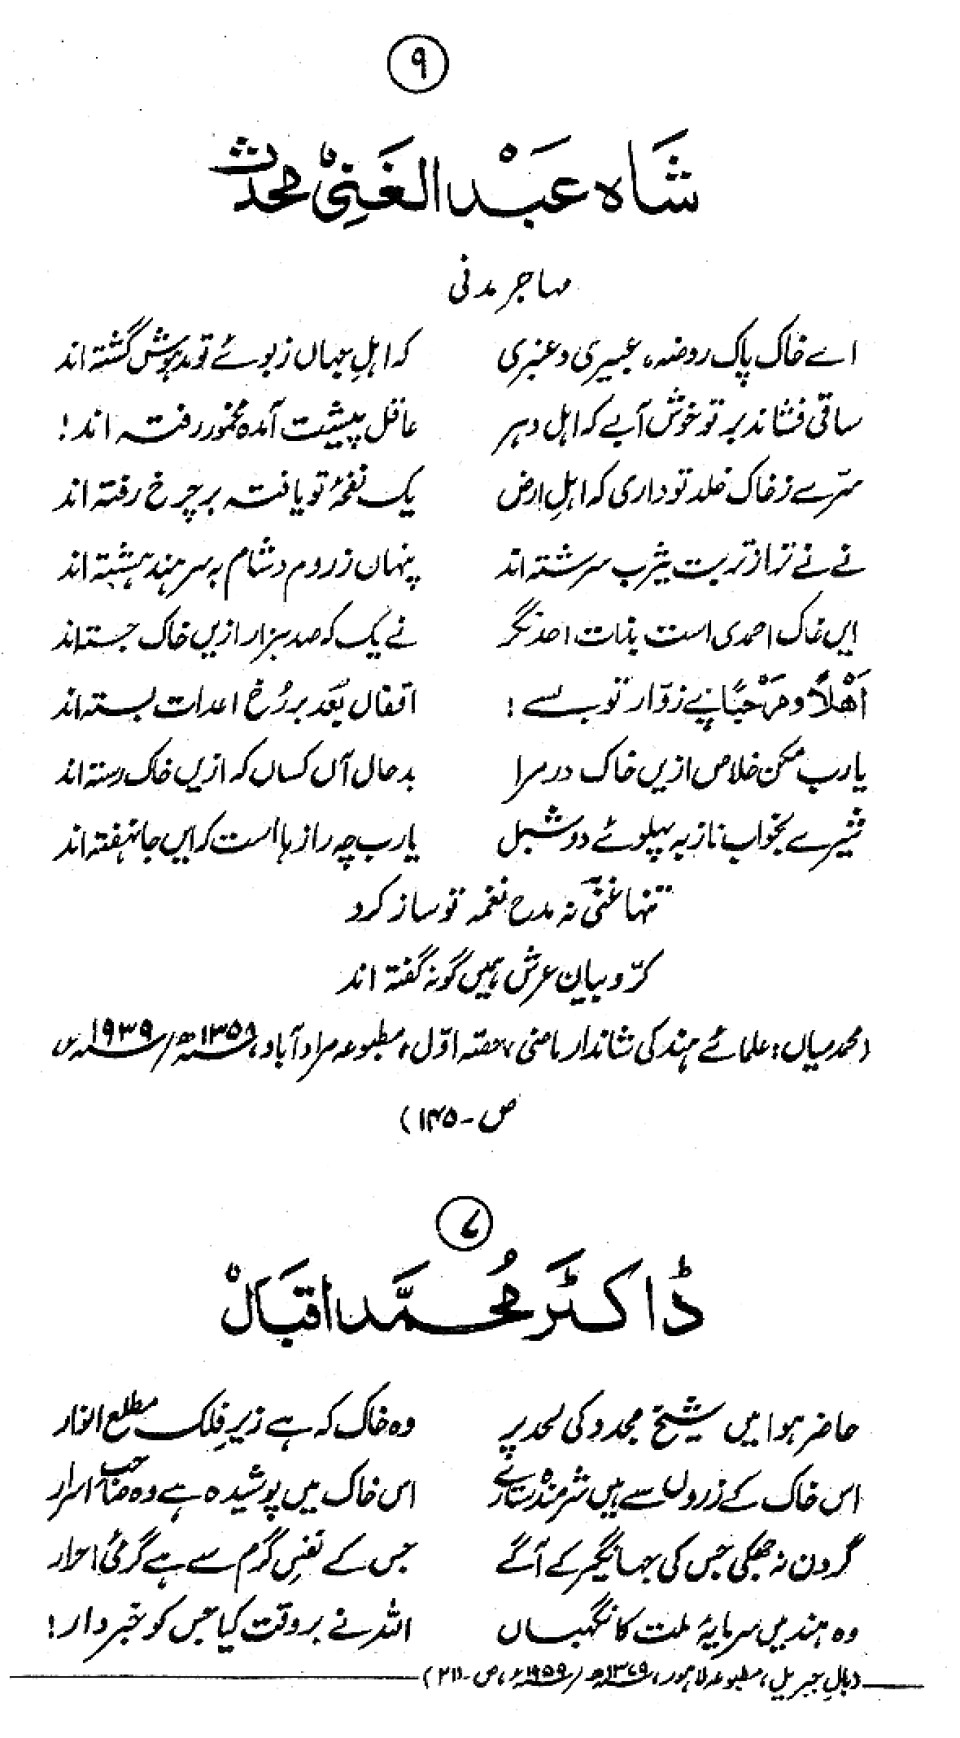 ۹
شاہ عبدالغنیؒ محدث
مہاجر مدنی
اے خاک پاک روضہ، عبیری و عنبری کہ اہلِ جہاں ز بوئے تو مدہوش گشتہ اند
ساقی فشاند بر تو خوش آبے کہ اہل دہر عاقل پیشت آمدہ مخمور رفتہ اند!
سرّے ز خاک خلد تو داری کہ اہلِ ارض یک نفحۂ تو یافتہ بر چرخ رفتہ اند
نے نے ترا ز تربت یثرب سرشتہ اند پنہاں ز روم و شام بہ سرہند ہشتہ اند
ایں خاک احمدی است بذات احد نگر نے یک کہ صد ہزار ازیں خاک جستہ اند
اَھْلاً و مَرْحَبًا پئے زوّار تو بسے! اقفال بُعد بر رُخ اعدات بستہ اند
یارب مکن خلاص ازیں خاک در مرا بد حال آں کساں کہ ازیں خاک رستہ اند
شیرے بخواب ناز بہ پہلوئے دو شبل یارب چہ رازہا است کہ ایں جا نہفتہ اند
تنہا غنیؔ نہ مدح نغمہ تو ساز کرد
کرّوبیان عرش ہمیں گونہ گفتہ اند
(محمد میاں: علمائے ہند کی شاندار ماضی، حصّہ اوّل، مطبوعہ مراد آباد، ۱۳۵۸ھ/۱۹۳۹ء
ص۔۱۴۵)
۷
ڈاکٹر محمّد اقبالؒ
حاضر ہوا میں شیخ مجدد کی لحد پر وہ خاک کہ ہے زیرِ فلک مطلع انوار
اس خاک کے ذروں سے ہیں شرمندہ ستارے اس خاک میں پوشیدہ ہے وہ صاحب اسرار
گردن نہ جھکی جس کی جہانگیر کے آگے جس کے نفس گرم سے ہے گرمئی احرار
وہ ہند میں سرمایۂ ملت کا نگہباں اللہ نے بر وقت کیا جس کو خبردار!
(بالِ جبریل، مطبوعہ لاہور، ۱۳۷۹ھ/۱۹۵۹ء، ص۔۲۱۱)